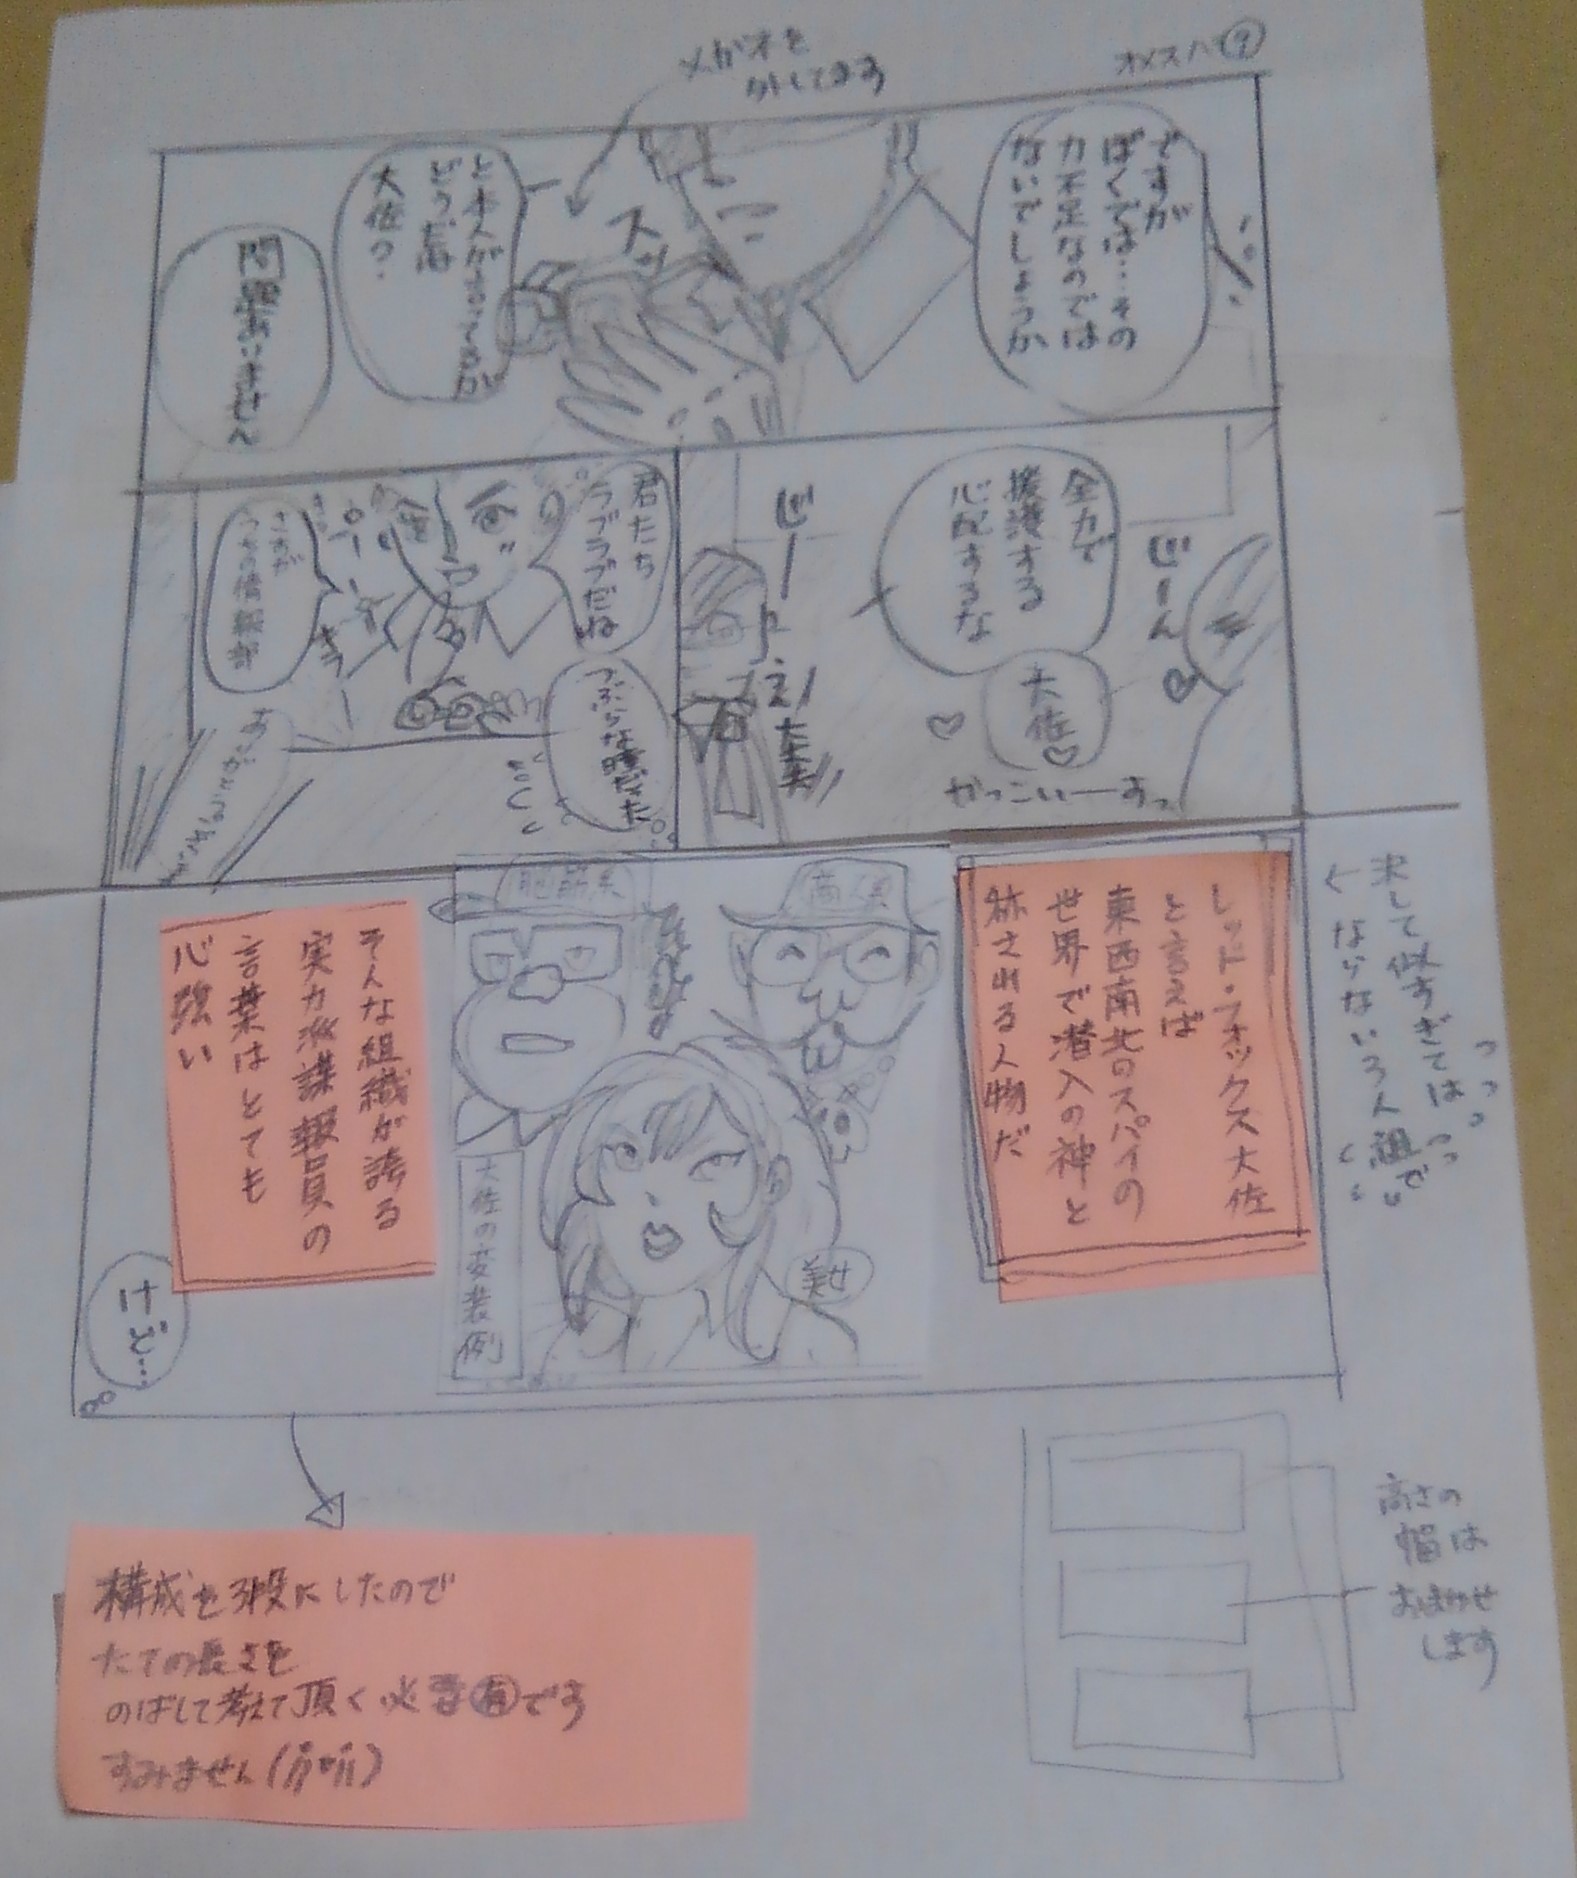 オメスパ⑨
メガネを
外してます
ですが
ぼくでは…その
力不足なのでは
ないでしょうか
スッ
と本人が言ってるが
どうだ
大佐？
問題ありません
全力で
援護する
心配するな
じーん
大佐
かっこいーすっ
じーっ
君たち
ラブラブだね
つぶらな瞳だった
さすが
うちの情報部
決して似すぎては
ならない3人組で
レッド・フォックス大佐
と言えば
東西南北のスパイの
世界で潜入の神と
称される人物だ
商人
美女
大佐の変装例
そんな組織が誇る
実力派諜報員の
言葉はとても
心強い
けど…
構成を3段にしたので
たての長さを
のばして考えて頂く必要有です
すみません
高さの
幅は
おまかせ
します